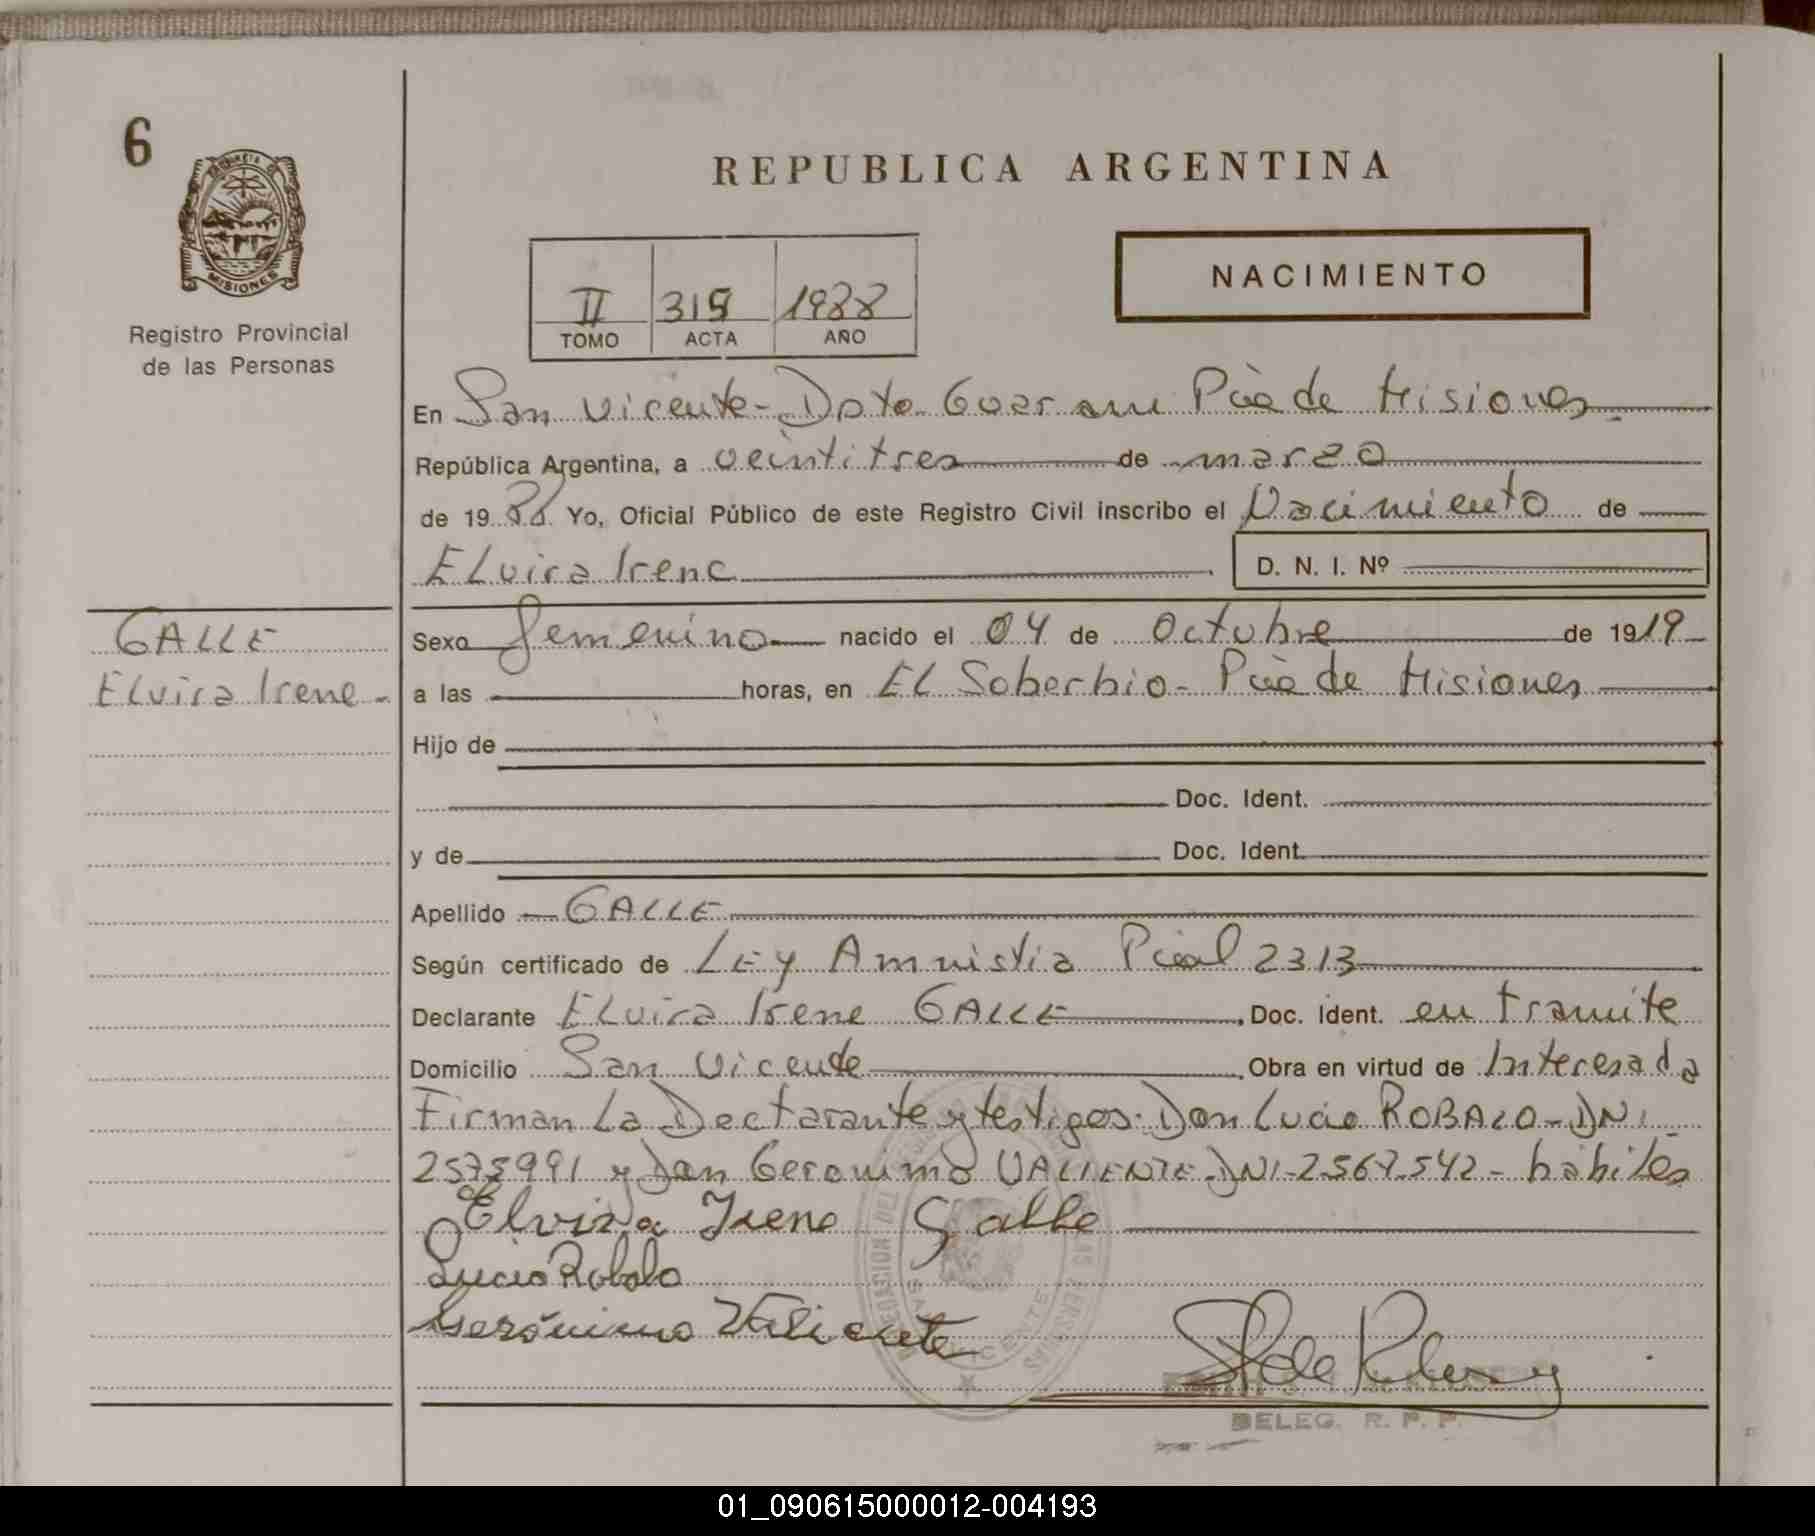 6
REPUBLICA ARGENTINA
MISIONES
Registro Provincial
de las Personas
NACIMIENTO
II 315 1988
TOMO ACTA AÑO
En San Vicente - Dpto Guarani Pcia de Misiones
República Argentina, a veintitres de marzo
de 1988 Yo, Oficial Público de este Registro Civil inscribo el Nacimiento de
Elvira Irene D. N. I. Nº
GALLE
Elvira Irene -
Sexo Femenino nacido el 04 de Octubre de 1919
a las horas, en El Soberbio - Pcia de Misiones
Hijo de
Doc. Ident.
y de Doc. Ident.
Apellido GALLE
Según certificado de Ley Amnistia Pcial 2313
Declarante Elvira Irene GALLE Doc. ident. en tramite
Domicilio San Vicente Obra en virtud de Interesada
Firman La Declarante y testigos: Don Lucio ROBALO - DNI
2575991 y Don Geronimo VALIENTE - DNI - 2567542 - habiles
Elvira Irene Galle
Lucio Robalo
Gerónimo Valiente
SAN VICENTE
DELEG. R. P. P.
01_090615000012-004193